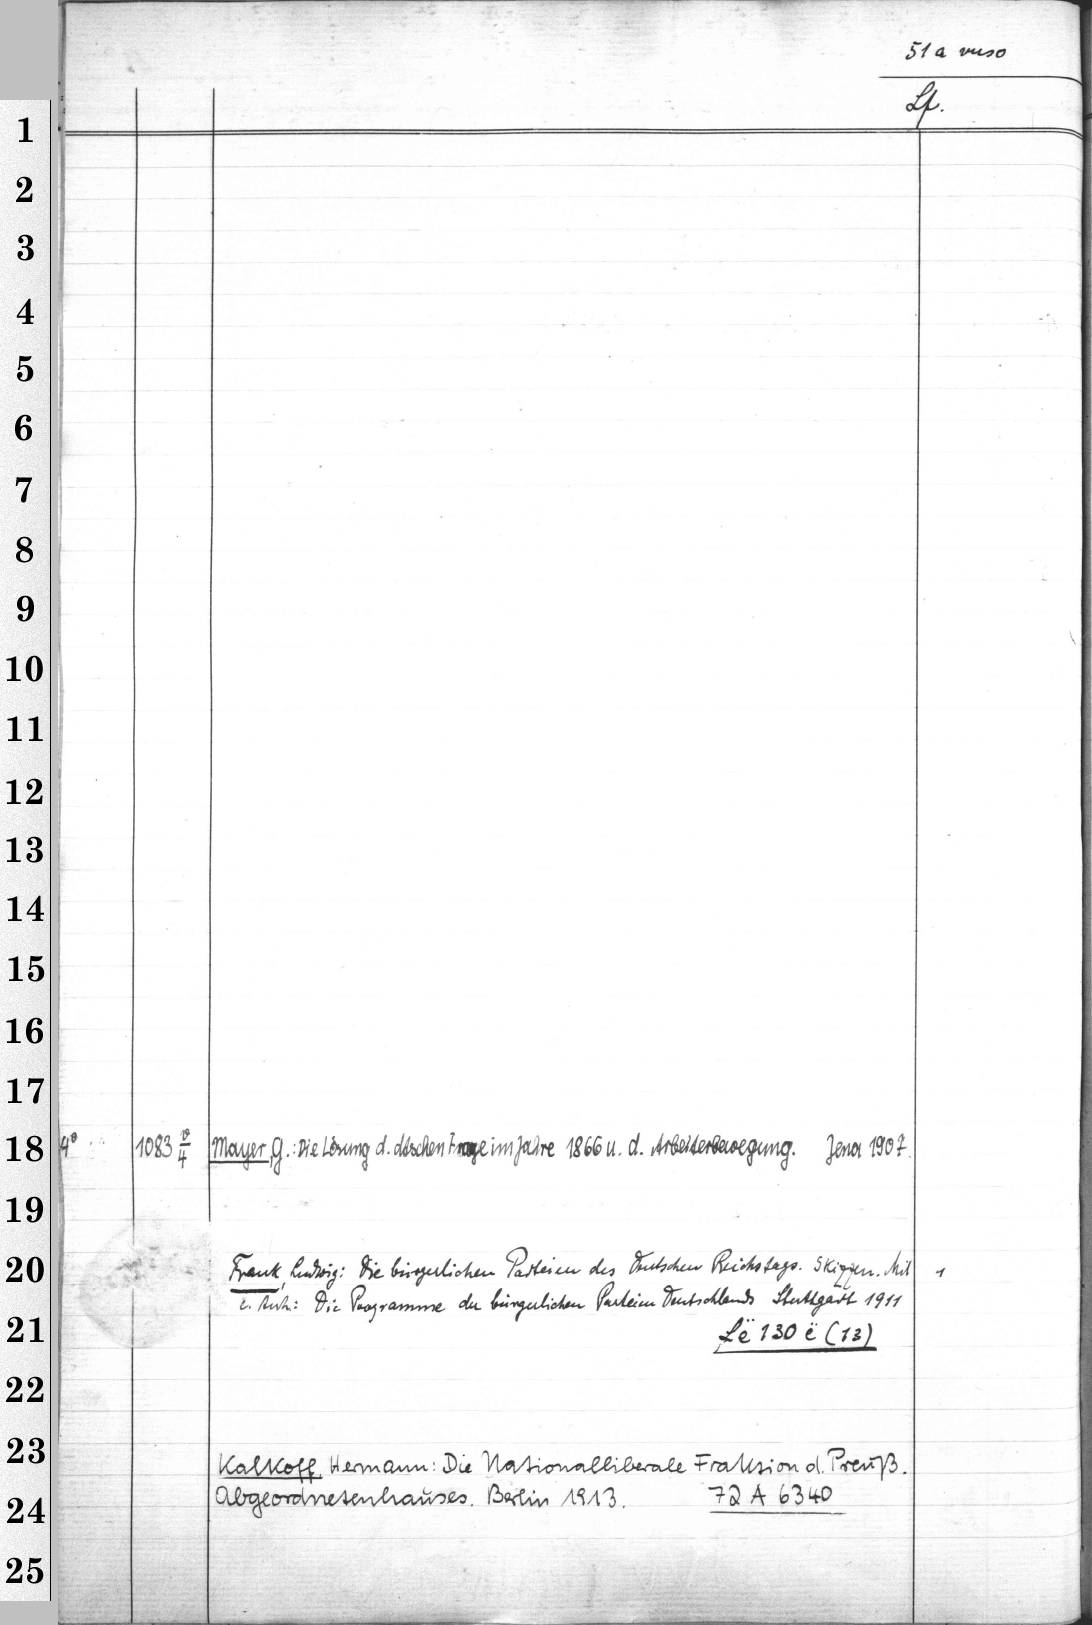 51a verso
Lf.
1
2
3
4
5
6
7
8
9
10
11
12
13
14
15
16
17
18 4° 1083 v/4 Mayer, G.: Die Lösung d. dtschen Frage im Jahre 1866 u. d. Arbeiterbewegung. Jena 1907.
19
20 Frank, Ludwig: Die bürgerlichen Parteien des Deutschen Reichstags. Skizzen. Mit 1
e. Anh.: Die Programme der bürgerlichen Parteien Deutschlands Stuttgart 1911
21 Lë 130 ë (13)
22
23 Kalkoff, Hermann: Die Nationalliberale Fraktion d. Preuß.
24 Abgeordnetenhauses. Berlin 1913. 72 A 6340
25